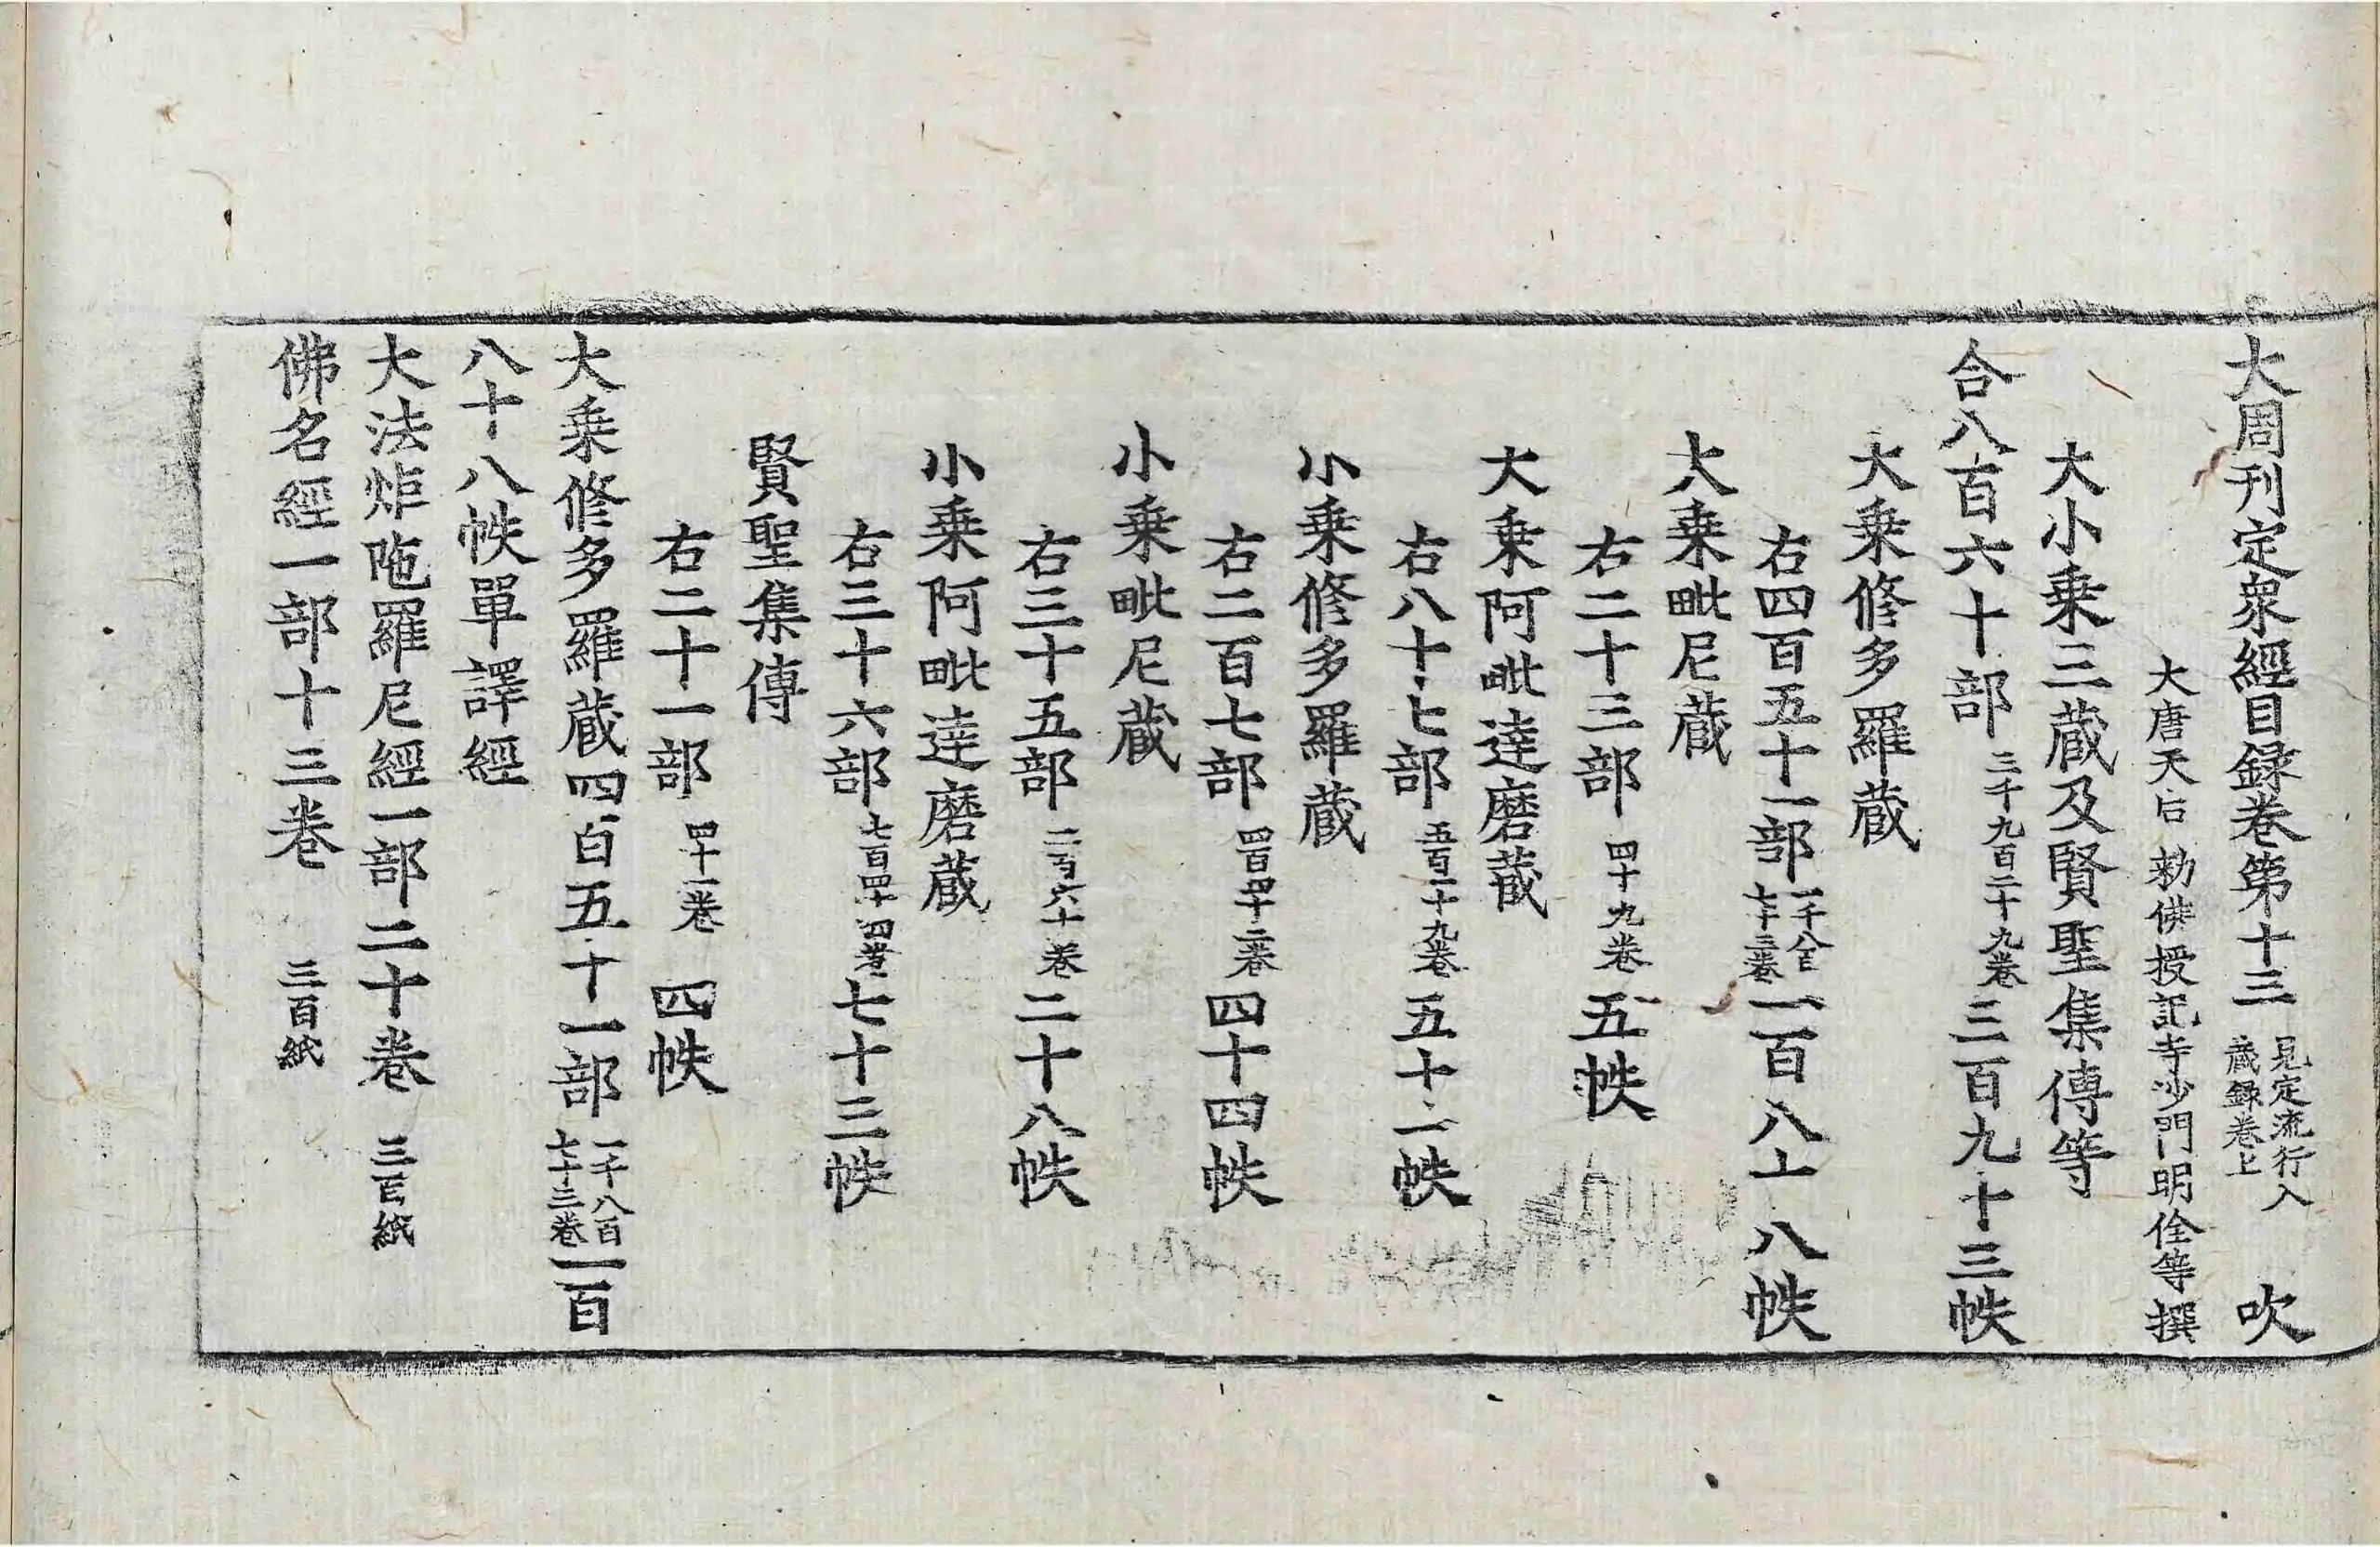 大周刊定衆經目録卷第十三 見定流行入藏録卷上 吹
大唐天后勅佛授記寺沙門明佺等撰
大小乗三藏及賢聖集傳等
合八百六十部 三千九百二十九卷 三百九十三帙
大乗修多羅藏
右四百五十一部 一千八百七十三卷 一百八十八帙
大乗毗尼藏
右二十三部 四十九卷 五帙
大乗阿毗達磨藏
右八十七部 五百一十九卷 五十二帙
小乗修多羅藏
右二百七部 四百四十二卷 四十四帙
小乗毗尼藏
右三十五部 二百六十一卷 二十八帙
小乗阿毗達磨藏
右三十六部 七百四十四卷 七十三帙
賢聖集傳
右二十一部 四十一卷 四帙
大乗修多羅藏四百五十一部 一千八百七十三卷 一百
八十八帙單譯經
大法炬陁羅尼經一部二十卷 三百紙
佛名經一部十三卷 三百紙